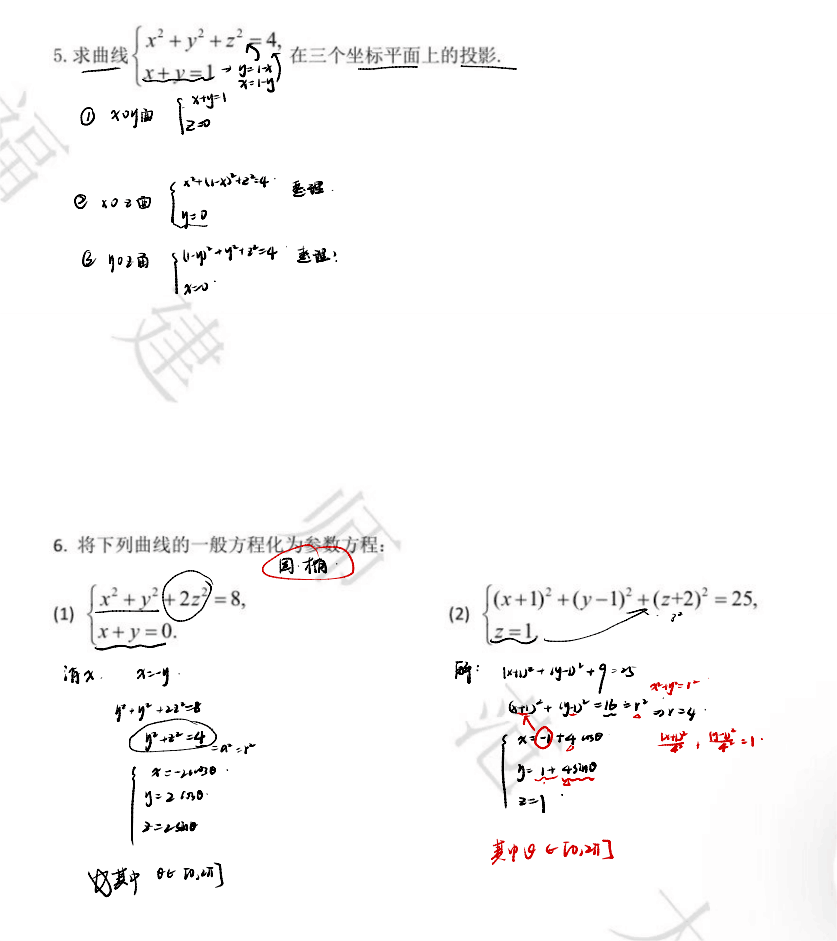 5. 求曲线 { x² + y² + z² = 4,
x + y = 1 → y=1-x
x=1-y
在三个坐标平面上的投影.
① xoy面 { x+y=1
z=0
② xoz面 { x²+(1-x)²+z²=4 整理.
y=0
③ yoz面 { (1-y)²+y²+z²=4 整理.
x=0
6. 将下列曲线的一般方程化为参数方程:
圆.椭.
(1) { x² + y² + 2z² = 8,
x + y = 0.
消x. x=-y.
y²+y²+2z²=8
y²+z²=4 =a²=r²
{ x=-2cosθ
y=2cosθ.
z=2sinθ
其中 θ∈[0,2π]
(2) { (x+1)² + (y−1)² + (z+2)² = 25,
z = 1
3²
解: (x+1)²+(y-1)²+9=25
x²+y²=r²
(x+1)²+(y-1)²=16=r² ⇒ r=4.
{ x=-1+4cosθ
(x+1)²/4² + (y-1)²/4² = 1.
y=1+4sinθ
z=1
其中θ∈[0,2π]
福
建
师
范
大